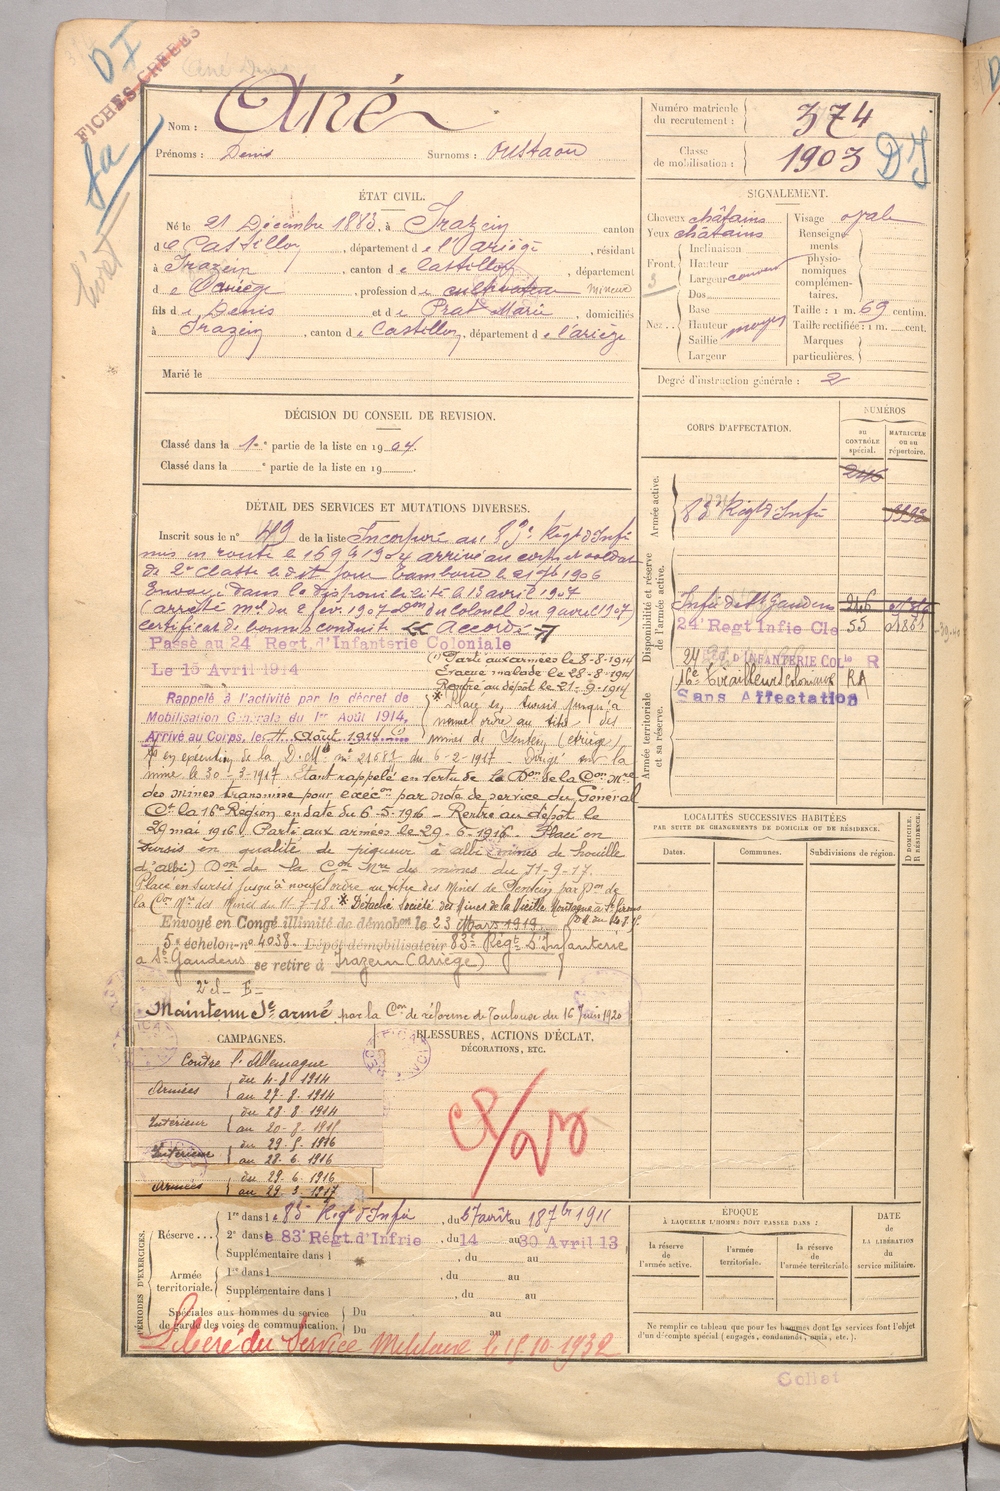 D I
FICHES CRÉÉES
Nom : Ané
Prénoms : Denis Surnoms : Oustaou
Numéro matricule du recrutement : 374
Classe de mobilisation : 1903
ÉTAT CIVIL.
Né le 21 Décembre 1883, à Irazein canton
de Castillon, département de l'Ariège, résidant
à Irazein, canton de Castillon, département
de Ariège, profession de cultivateur mineur
fils de Denis et de Prat Marie, domiciliés
à Irazein, canton de Castillon, département de l'ariège
Marié le
SIGNALEMENT.
Cheveux châtains
Yeux châtains
Front. Inclinaison
Hauteur
Largeur
Nez... Dos
Base
Hauteur moyen
Saillie
Largeur
Visage ovale
Renseignements physionomiques complémentaires.
Taille : 1 m. 69 centim.
Taille rectifiée : 1 m. cent.
Marques particulières.
Degré d'instruction générale : 2
DÉCISION DU CONSEIL DE REVISION.
Classé dans la 1re partie de la liste en 1904.
Classé dans la e partie de la liste en 19
DÉTAIL DES SERVICES ET MUTATIONS DIVERSES.
Inscrit sous le n° 49 de la liste Incorporé au 83e Régt d'Infie
mis en route le 15 9bre 1904 arrivé au corps et soldat
de 2e classe le dit jour Tambour le 21 7bre 1906
Envoyé dans la disponibilité le 13 avril 1907
(arrêté Mel du 2 fév. 1907 Don du Colonel du 9 avril 1907)
certificat de bonne conduite << Accordé >>
Passé au 24 Regt d'Infanterie Coloniale
Le 15 Avril 1914
(1) Parti aux armées le 8-8-1914
Evacué malade le 28-8-1914
Rentré au dépôt le 21-9-1914
Rappelé à l'activité par le décret de
Mobilisation Générale du 1er Août 1914.
Arrivé au Corps, le 4 Août 1914
* Placé en sursis jusqu'à
nouvel ordre au titre des
mines de Sentein (ariège)
en exécution de la D. Mlle n° 21583 du 6-2-1917 - Dirigé sur la
mine le 30-3-1917. Etant rappelé en vertu de la Don de la Con Mre
des mines transmise pour exécon par note de service du Général
Ct la 16e Région en date du 6-5-1916 - Rentre au dépôt le
29 mai 1916. Parti aux armées le 29-6-1916. Placé en
sursis en qualité de piqueur à albi (mines de houille
d'albi) Don de la Con Mre des mines du 11-9-17.
Placé en sursis jusqu'à nouvel ordre au titre des Mines de Sentein par Don de
la Con Mre des Mines du 11-7-18. * Détaché Société des Mines de la Vieille Montagne à St Girons
Envoyé en Congé illimité de démobon le 23 Mars 1919
5e échelon n° 4038. Dépôt démobilisateur 83e Régt d'Infanterie
à St Gaudens se retire à Irazein (Ariège)
Maintenu Sce armé par la Con de réforme de Toulouse du 16 Juin 1920
CAMPAGNES.
Contre l'Allemagne
Armées { du 4-8-1914
au 27-8-1914
Intérieur { du 28-8-1914
au 20-8-1915
Intérieur { du 29-5-1916
au 28-6-1916
Armées { du 29-6-1916
au 29-3-1917
BLESSURES, ACTIONS D'ÉCLAT,
DÉCORATIONS, ETC.
CORPS D'AFFECTATION.
NUMÉROS
au CONTRÔLE spécial.
MATRICULE ou au répertoire.
Armée active.
246
83e Régt d'Infie
Disponibilité et réserve de l'armée active.
Infie de St Gaudens 246
24e Regt Infie Cle 55
24 D'INFANTERIE COLle R
16e Tirailleurs Coloniaux RA
Sans Affectation
Armée territoriale et sa réserve.
LOCALITÉS SUCCESSIVES HABITÉES
PAR SUITE DE CHANGEMENTS DE DOMICILE OU DE RÉSIDENCE.
Dates. Communes. Subdivisions de région.
D DOMICILE.
R RÉSIDENCE.
PÉRIODES D'EXERCICES.
Réserve... 1re dans le 83e Régt d'Infie du 27 août au 18 7bre 1911
2e dans le 83e Régt. d'Infrie du 14 au 30 Avril 13
Supplémentaire dans l du au
Armée territoriale. 1re dans l du au
Supplémentaire dans l du au
Spéciales aux hommes du service de garde des voies de communication. Du au
Du au
Libéré du Service Militaire le 15-10-1932
ÉPOQUE
À LAQUELLE L'HOMME DOIT PASSER DANS :
la réserve de l'armée active.
l'armée territoriale.
la réserve de l'armée territoriale.
DATE DE LA LIBÉRATION du service militaire.
Ne remplir ce tableau que pour les hommes dont les services font l'objet
d'un décompte spécial (engagés, condamnés, omis, etc.).
Collat